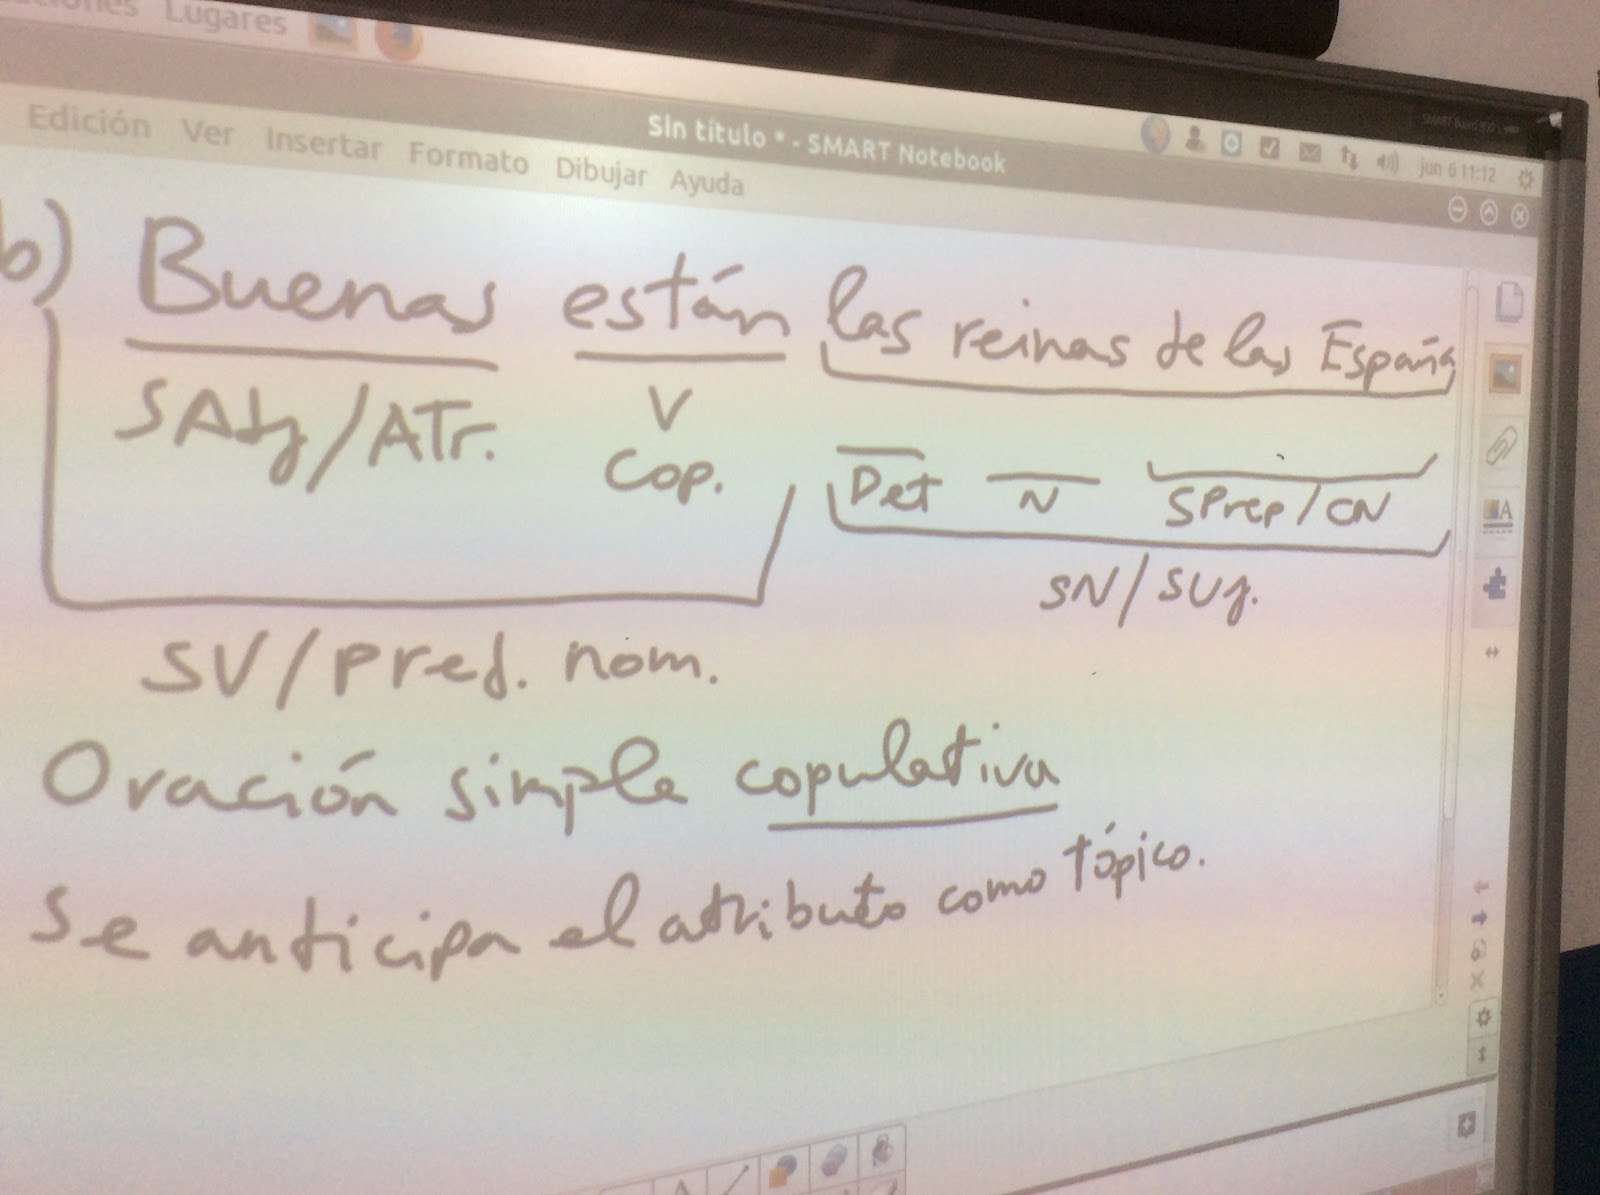 Lugares
Sin título * - SMART Notebook
jun 6 11:12
Edición Ver Insertar Formato Dibujar Ayuda
b) Buenas están las reinas de las España
SAdj/ATr. V Cop. Det N SPrep/CN
SN/Suj.
SV/Pred. nom.
Oración simple copulativa
Se anticipa el atributo como tópico.